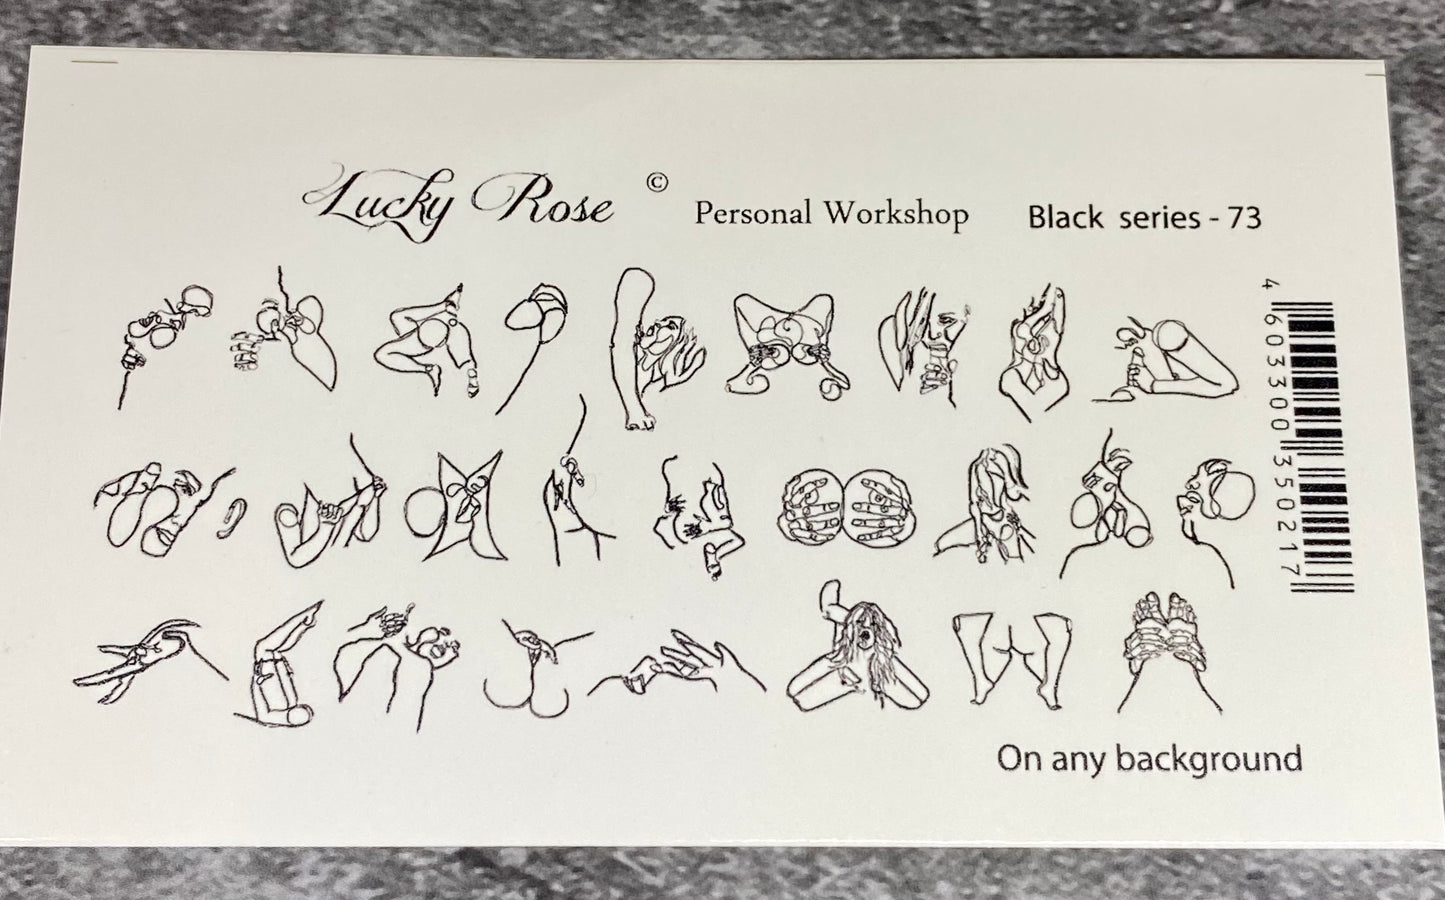 Lucky Rose © Personal Workshop Black series - 73
4 603300 350217
On any background